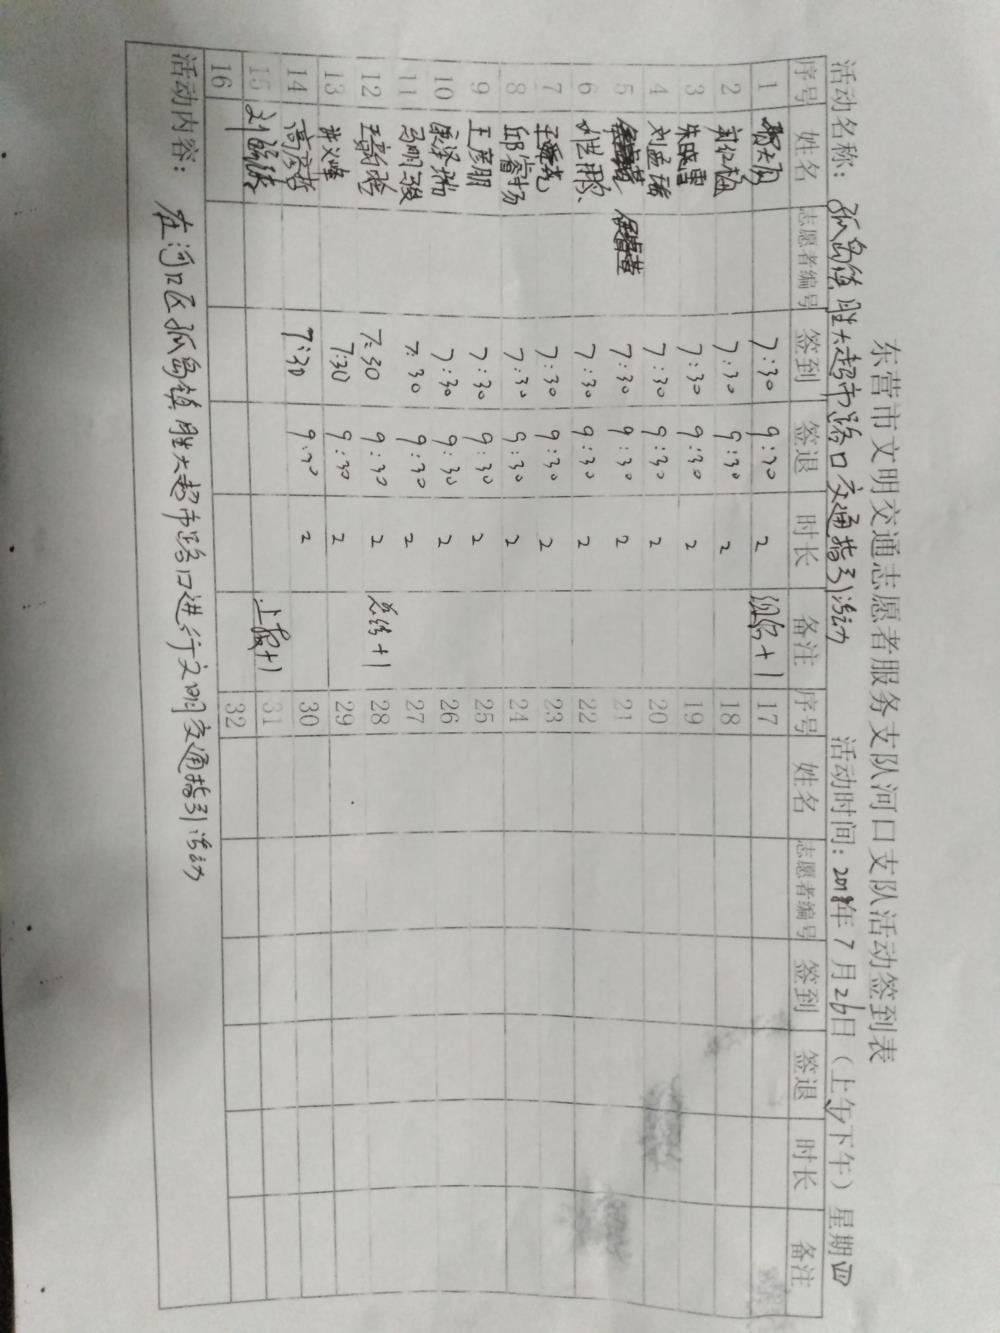 东营市文明交通志愿者服务支队河口支队活动签到表
活动名称：孤岛镇胜大超市路口交通指引活动 活动时间：2018年7月26日（上午/下午）星期四
序号 姓名 志愿者编号 签到 签退 时长 备注 序号 姓名 志愿者编号 签到 签退 时长 备注
1 7:30 9:30 2 组织+1 17
2 7:30 9:30 2 18
3 朱晓雪 7:30 9:30 2 19
4 刘孟瑶 7:30 9:30 2 20
5 7:30 9:30 2 21
6 7:30 9:30 2 22
7 7:30 9:30 2 23
8 邱睿扬 7:30 9:30 2 24
9 王彦朋 7:30 9:30 2 25
10 康泽瑞 7:30 9:30 2 26
11 7:30 9:30 2 27
12 7:30 9:30 2 总结+1 28
13 7:30 9:30 2 29
14 高彦哲 7:30 9:30 2 30
15 上报+1 31
16 32
活动内容：在河口区孤岛镇胜大超市路口进行文明交通指引活动